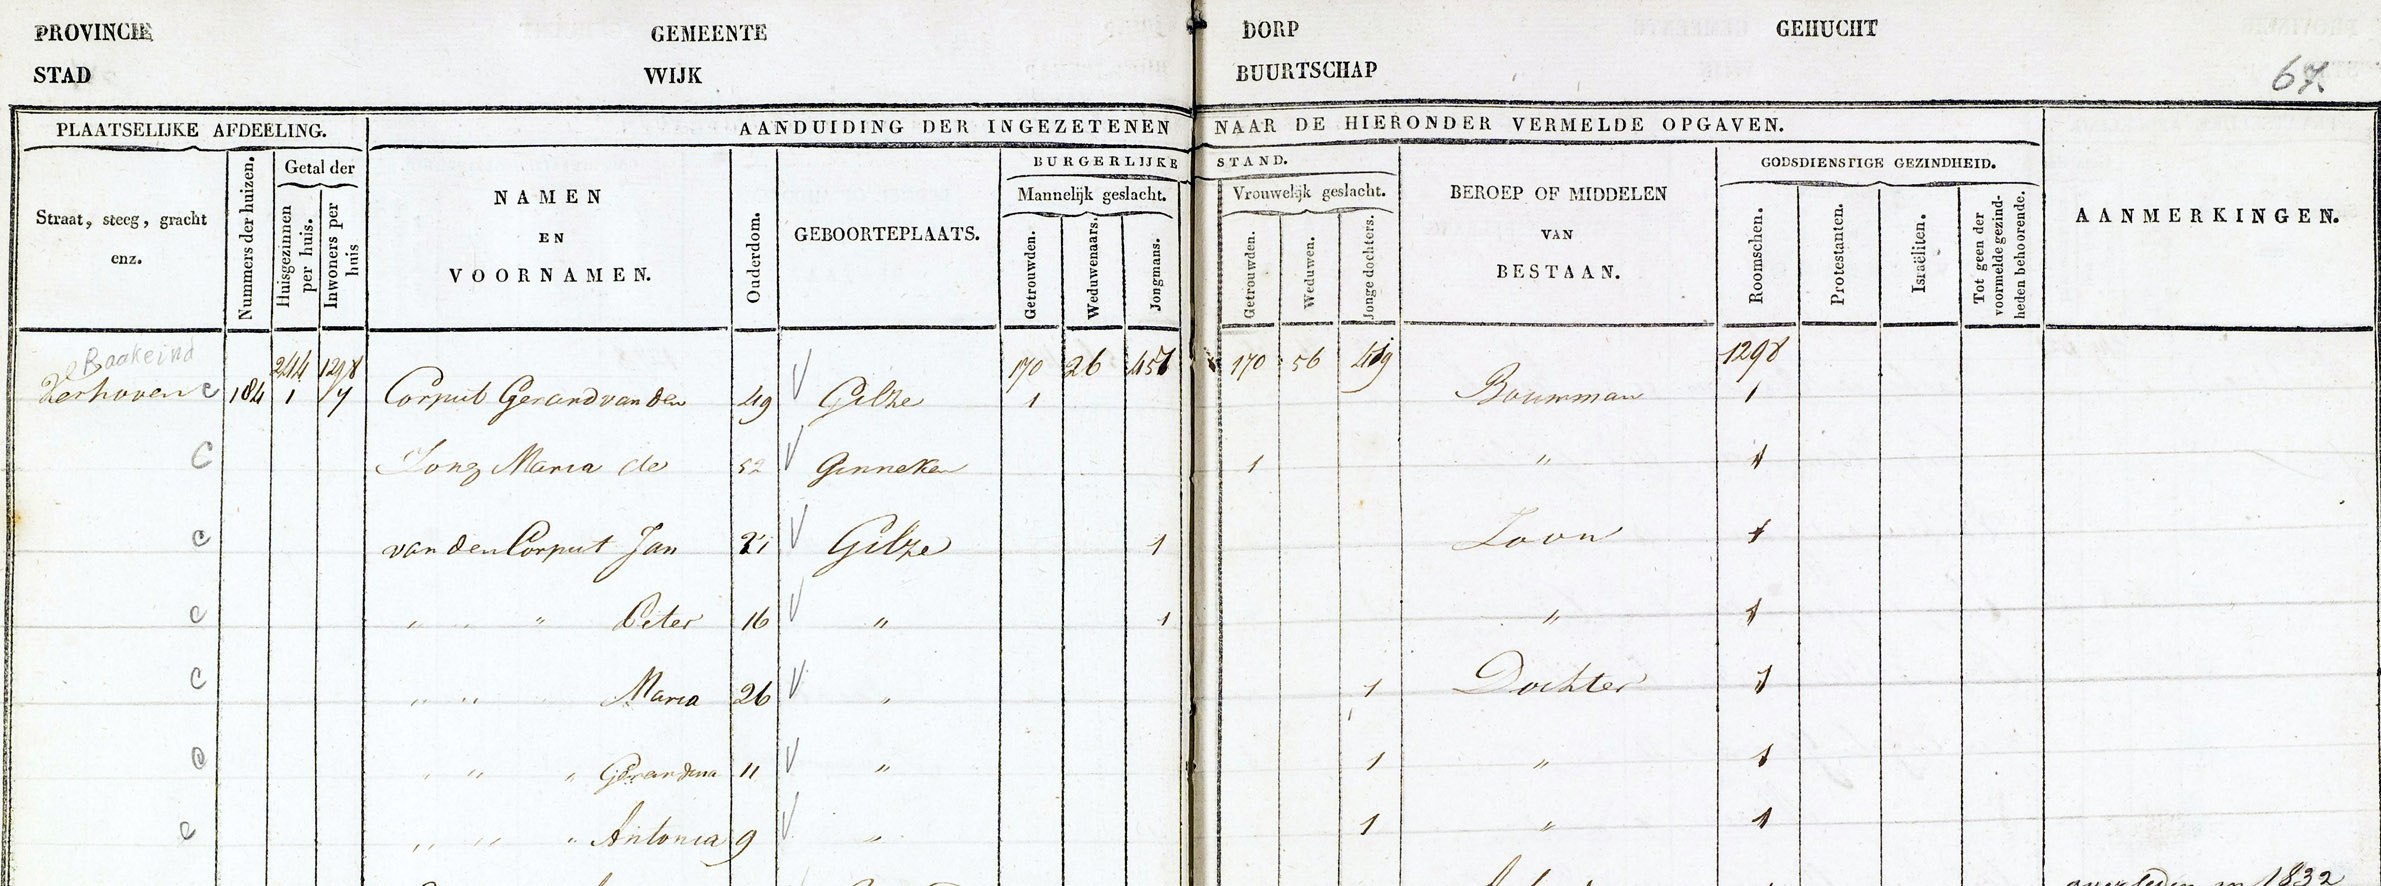 PROVINCIE GEMEENTE DORP GEHUCHT
STAD WIJK BUURTSCHAP
67
PLAATSELIJKE AFDEELING. AANDUIDING DER INGEZETENEN NAAR DE HIERONDER VERMELDE OPGAVEN.
Straat, steeg, gracht enz. Nummers der huizen. Getal der Huisgezinnen per huis. Inwoners per huis NAMEN EN VOORNAMEN. Ouderdom. GEBOORTEPLAATS. BURGERLIJKE STAND. Mannelijk geslacht. Getrouwden. Weduwenaars. Jongmans. Vrouwelijk geslacht. Getrouwden. Weduwen. Jonge dochters. BEROEP OF MIDDELEN VAN BESTAAN. GODSDIENSTIGE GEZINDHEID. Roomschen. Protestanten. Israëliten. Tot geen der voormelde gezindheden behoorende. AANMERKINGEN.
Baakeind 244 1298 170 26 457 170 56 419 1298
Verhoven C 184 1 7 Corput Gerard van den 49 Gilze 1 Bouwman 1
C Jong Maria de 52 Ginneken 1 " 1
C van den Corput Jan 21 Gilze 1 Zoon 1
C " " " Peter 16 " 1 " 1
C " " " Maria 26 " 1 Dochter 1
C " " " Gerardina 11 " 1 " 1
C " " " Antonia 9 " 1 " 1
overleden in 1832